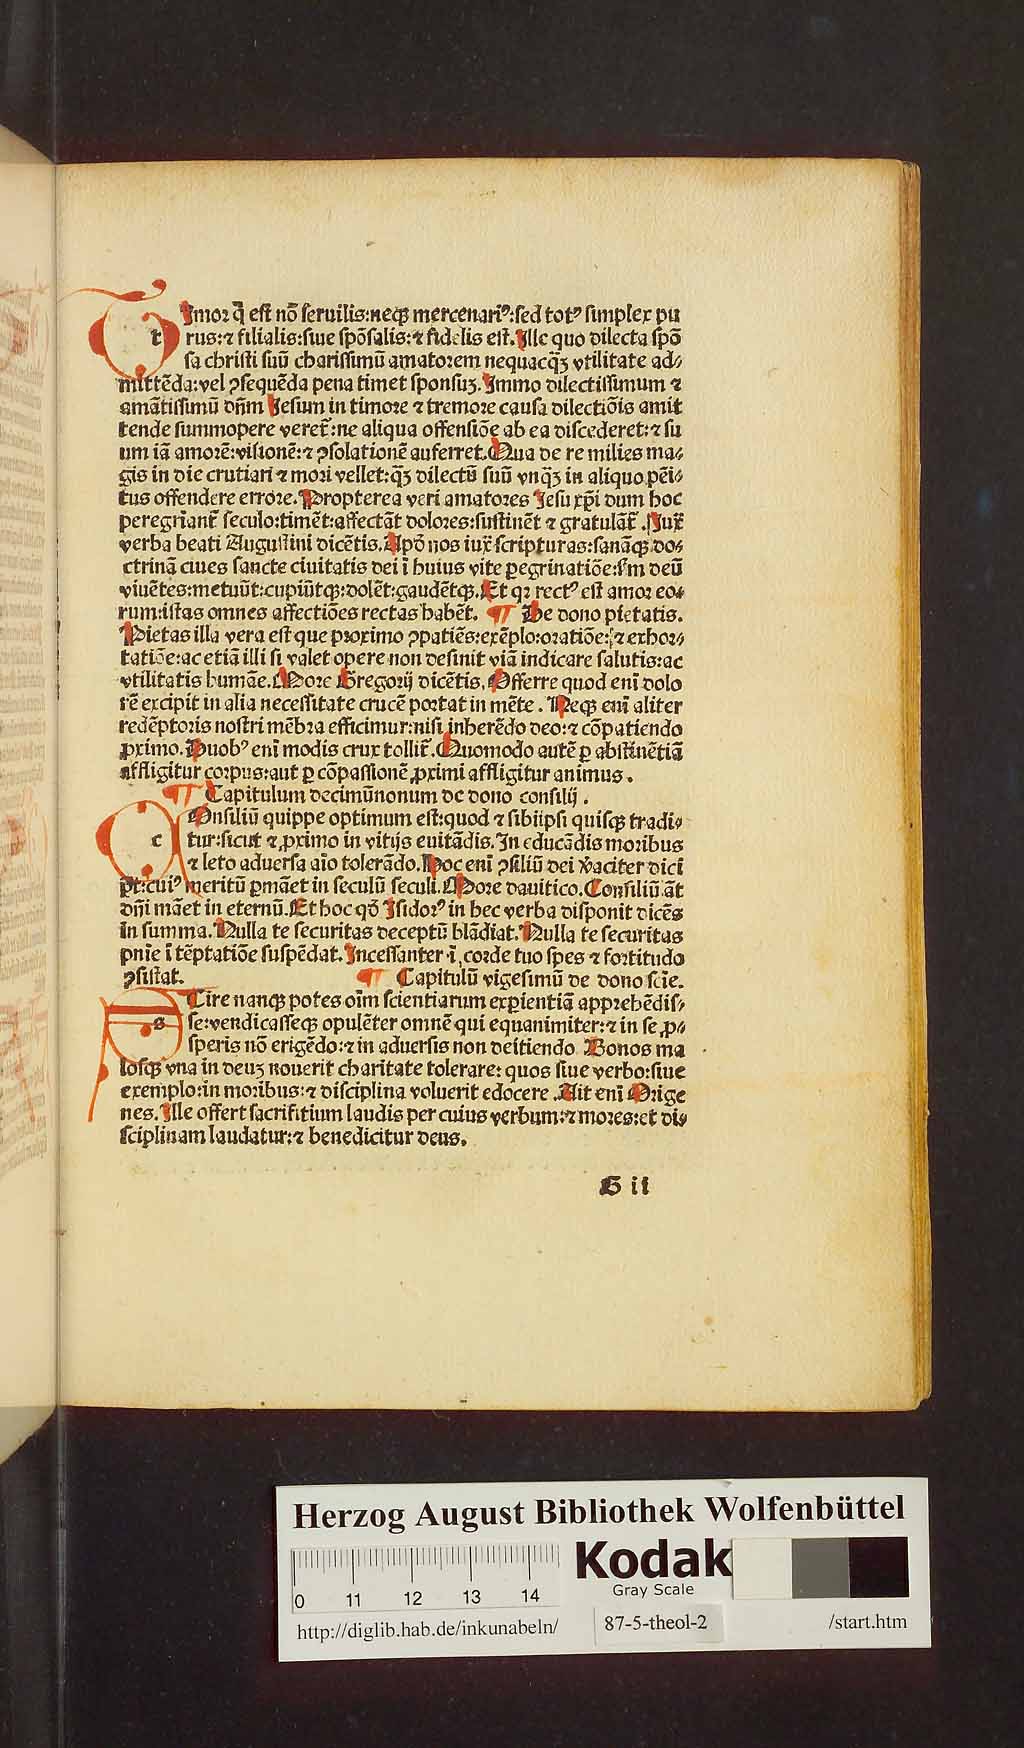 TImor q̄ est nō seruilis:neqꝫ mercenariꝰ:sed totꝰ simplex pu
rus:⁊ filialis:siue spōsalis:⁊ fidelis est.Ille quo dilecta spō
sa christi suū charissimū amatorem nequacqꝫ vtilitate ad⸗
mittēda:vel ꝯsequēda pena timet sponsuꝫ.Immo dilectissimum ⁊
amātissimū dn̄m Iesum in timore ⁊ tremore causa dilectiōis amit
tende summopere veret̄:ne aliqua offensiōe ab ea discederet:⁊ su
um iā amorē:visionē:⁊ ꝯsolationē auferret.Qua de re milies ma⸗
gis in die crutiari ⁊ mori vellet:qꝫ dilectū suū vnqꝫ in aliquo pēi⸗
tus offendere errore.Propterea veri amatores Iesu xp̄i dum hoc
peregrīant̄ seculo:timēt:affectāt dolores:sustinēt ⁊ gratulāt̄.Iux̄
verba beati Augustini dicētis.Apō nos iux̄ scripturas:sanāqꝫ do⸗
ctrinā ciues sancte ciuitatis dei ī huius vite ꝑegrinatiōe:sm̄ deū
viuētes:metuūt:cupiūtqꝫ:dolēt:gaudētqꝫ.Et qꝛ rectꝰ est amor eo⸗
rum:istas omnes affectiōes rectas habēt. ¶ De dono pietatis.
Pietas illa vera est que proximo ꝯpatiēs:exēplo:oratiōe:⁊ exhor⸗
tatiōe:ac etiā illi si valet opere non desinit viā indicare salutis:ac
vtilitatis humāe.More Gregorij dicētis.Offerre quod enī dolo
rē excipit in alia necessitate crucē portat in mēte.Neqꝫ enī aliter
redēptoris nostri mēbra efficimur:nisi inherēdo deo:⁊ cōpatiendo
ꝓximo.Duobꝰ enī modis crux tollit̄.Quomodo autē ꝑ abstinētiā
affligitur corpus:aut ꝑ cōpassionē ꝓximi affligitur animus.
¶ Capitulum decimūnonum de dono consilij.
COnsiliū quippe optimum est:quod ⁊ sibiipsi quisqꝫ tradi⸗
tur:sicut ⁊ ꝓximo in vitijs euitādis.In educādis moribus
⁊ leto aduersa aīo tolerādo.Hoc enī ꝯsiliū dei v̄aciter dici
pt̄:cuiꝰ meritū ꝑmāet in seculū seculi.More dauitico.Consiliū āt
dn̄i māet in eternū.Et hoc qd̄ Isidorꝰ in hec verba disponit dicēs
in summa.Nulla te securitas deceptū blādiat.Nulla te securitas
pnīe ī tēptatiōe suspēdat.Incessanter ī corde tuo spes ⁊ fortitudo
ꝯsistat. ¶ Capitulū vigesimū de dono scīe.
SCire nanqꝫ potes oīm scientiarum exꝑientiā apprehēdis⸗
se:vendicasseqꝫ opulēter omnē qui equanimiter:⁊ in se ꝓ⸗
speris nō erigēdo:⁊ in aduersis non deitiendo Bonos ma
losqꝫ vna in deuꝫ nouerit charitate tolerare:quos siue verbo:siue
exemplo:in moribus:⁊ disciplina voluerit edocere.Ait enī Orige
nes.Ille offert sacrifitium laudis per cuius verbum:⁊ mores:et di⸗
sciplinam laudatur:⁊ benedicitur deus.
G ii
Herzog August Bibliothek Wolfenbüttel
Kodak
Gray Scale
0 11 12 13 14
http://diglib.hab.de/inkunabeln/ 87-5-theol-2 /start.htm